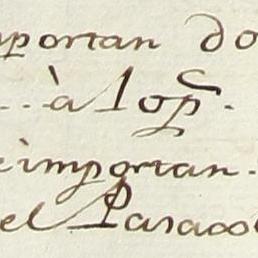 mportan do
à lop.
importan.
el Parasol